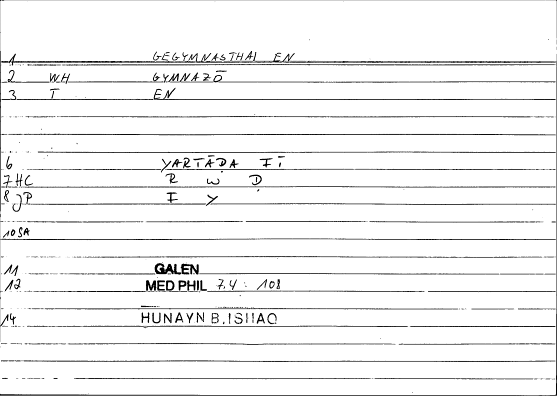 1 GEGYMNASTHAI EN
2 WH GYMNAZŌ
3 T EN
6 YARTĀḌA FĪ
7 HC R W Ḍ
8 JP F Y
10 SA
11 GALEN
12 MED PHIL 7.4 : 108
14 HUNAYN B.ISHAQ